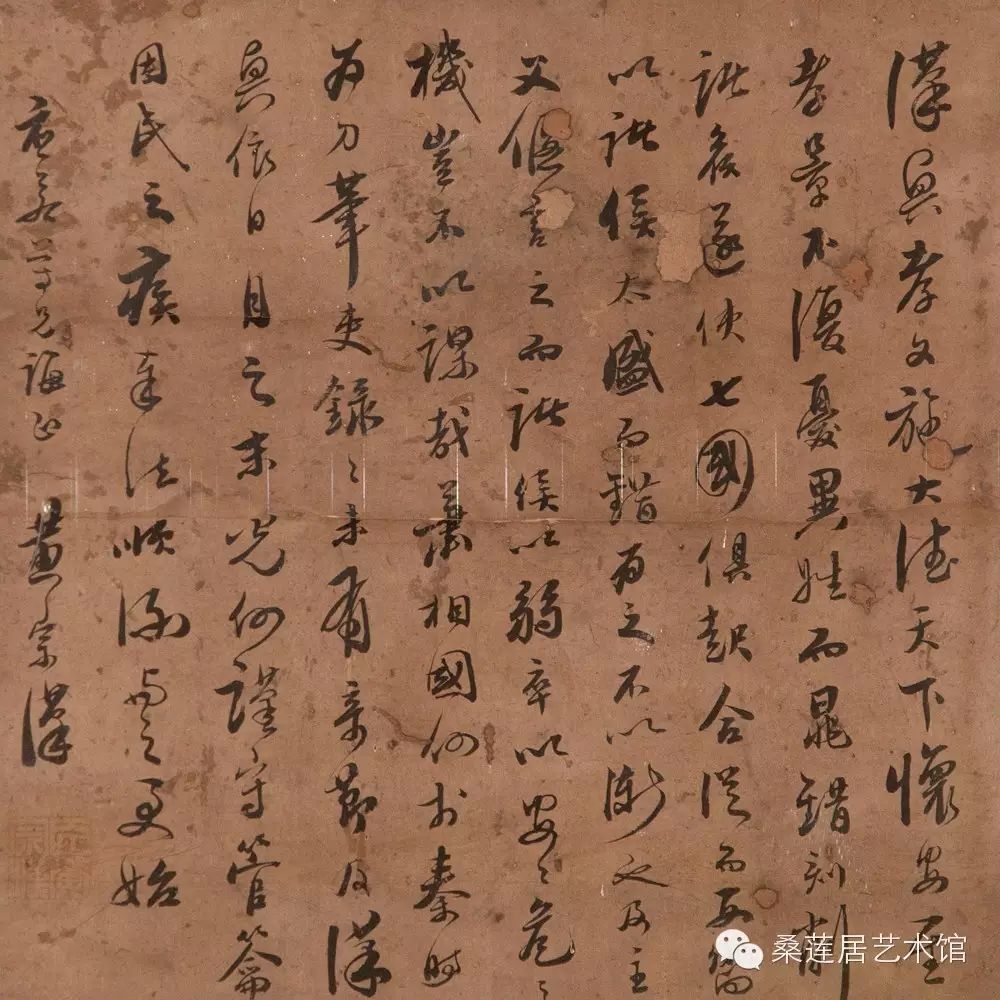 漢興孝文施大德天下懷安至
孝景不復憂異姓而晁錯刻削
諸侯遂使七國俱起合從而西鄉
以諸侯太盛而錯為之不以漸也及主
父偃言之而諸侯以弱卒以安〻危〻
機豈不以謀哉蕭相國何於秦時
為刀筆吏錄〻未有奇節及漢
興依日月之末光何謹守管籥
因民之疾秦法順流與之更始
尊兄誨正 黃宗漢
桑莲居艺术馆